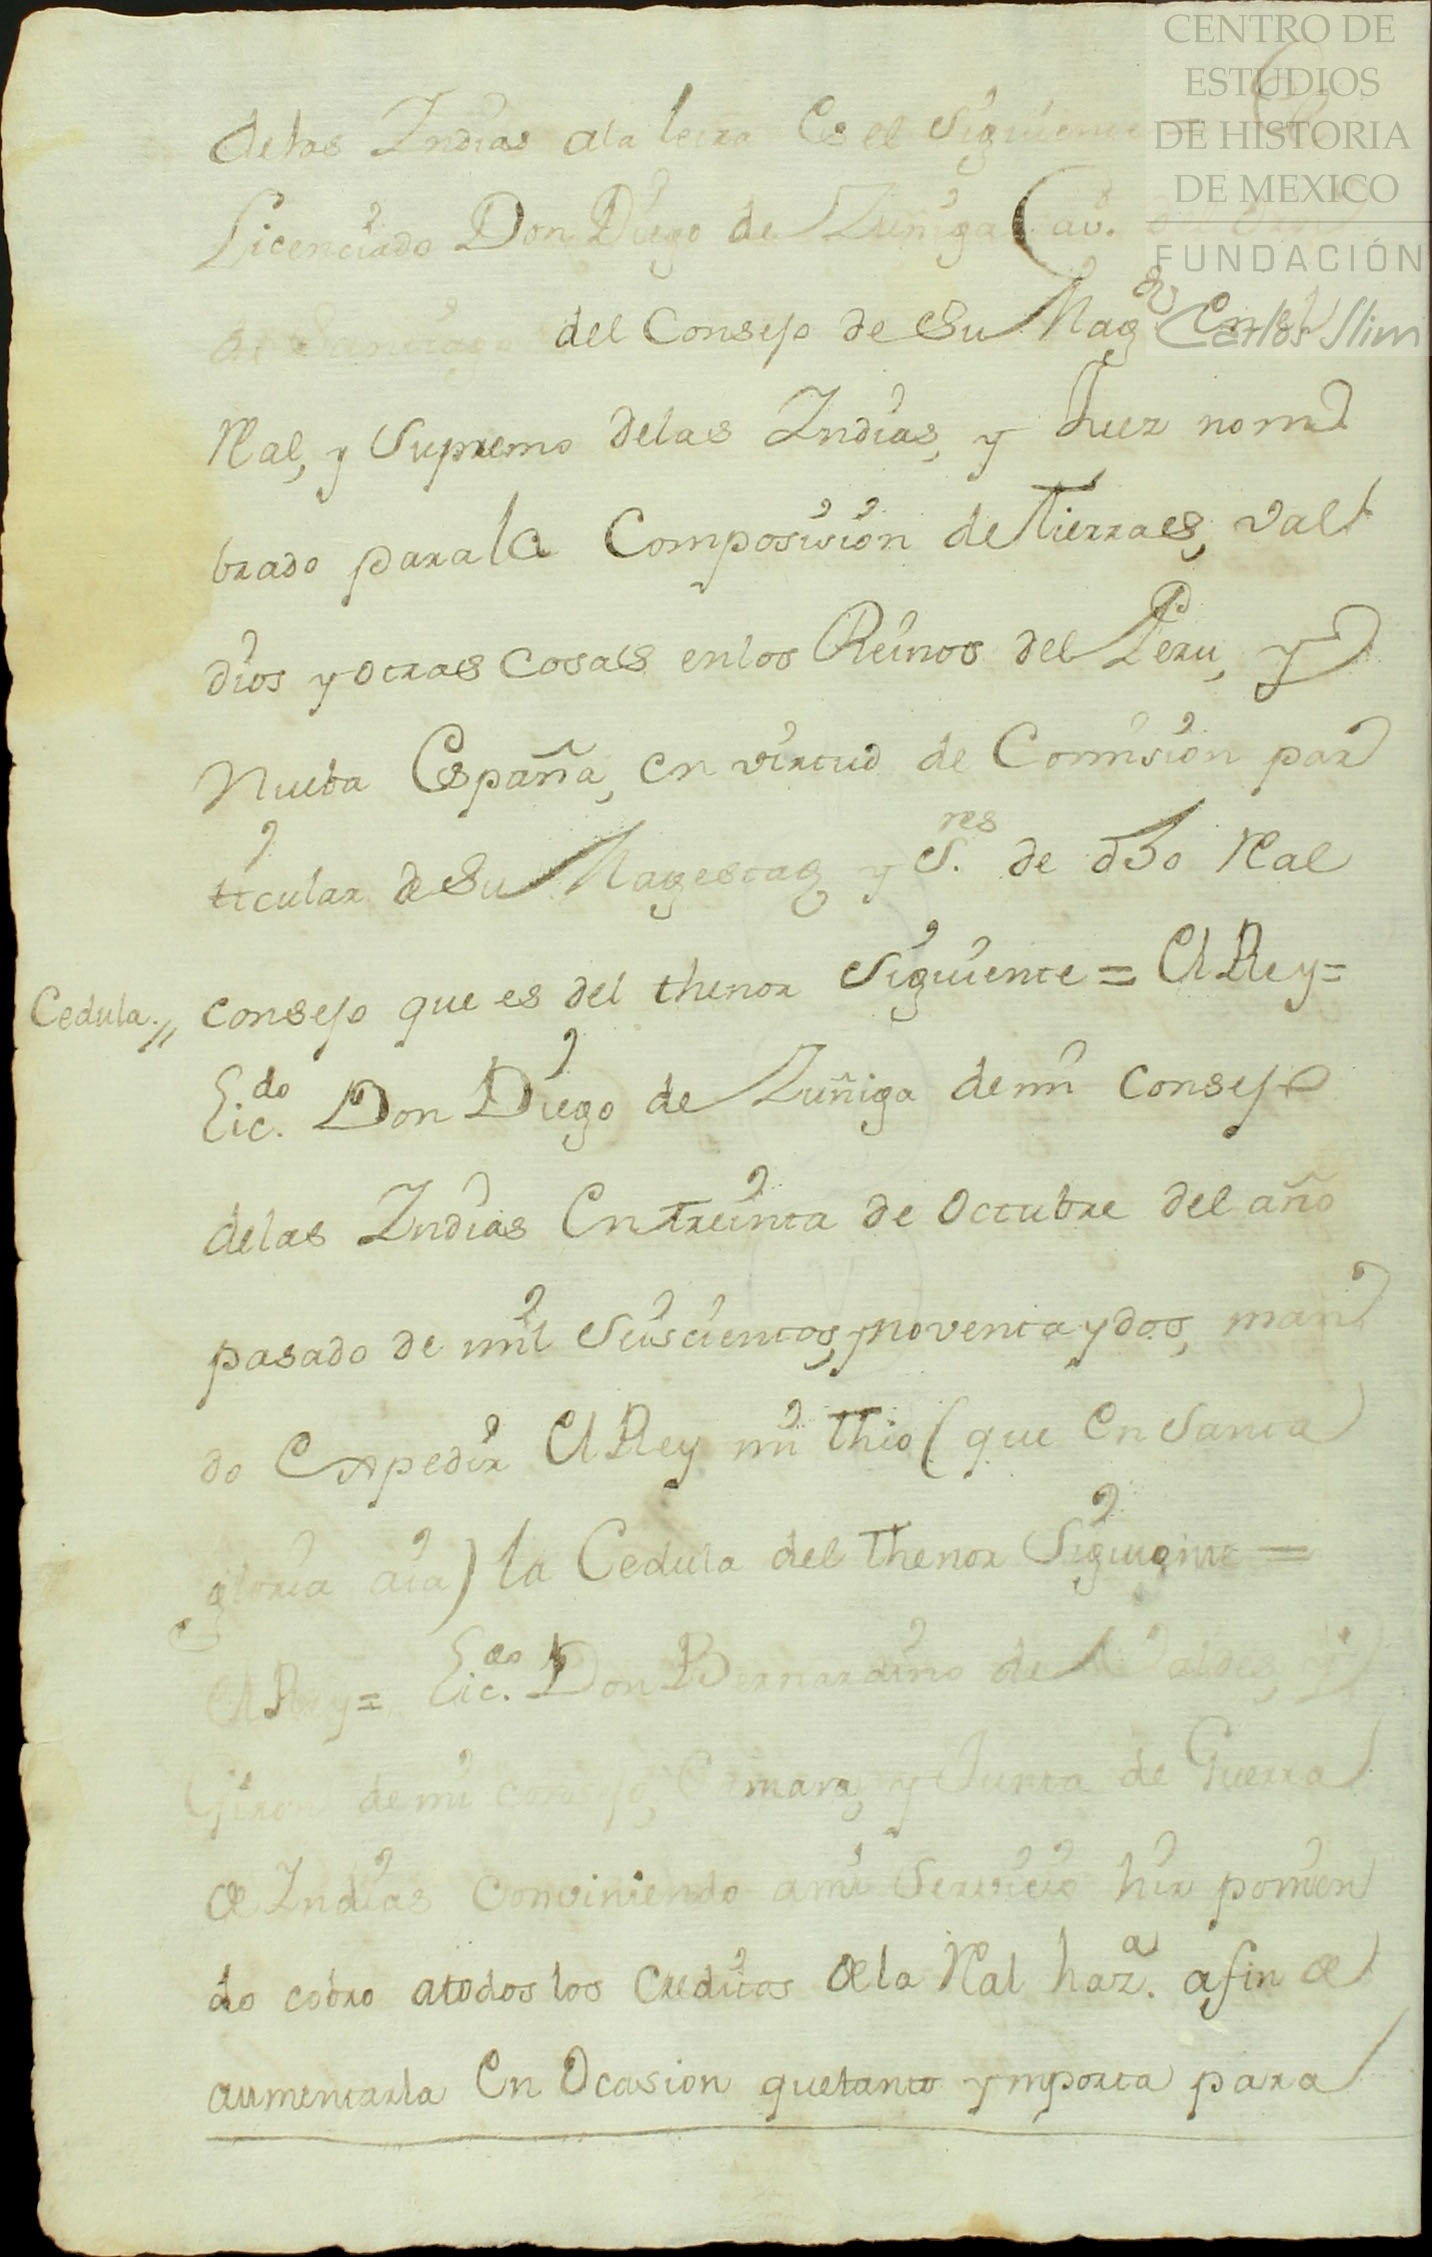 CENTRO DE
ESTUDIOS
DE HISTORIA
DE MEXICO
FUNDACIÓN
Carlos Slim
delas Indias ala letra Es el siguiente
Licenciado Don Diego de Zuñiga Cav.
de Santiago del Consejo de Su Mag.d En el
Ral, y Supremo delas Indias, y Juez nom
brado para la Composision de Tierras, val
dios y otras cosas enlos Reinos del Peru, y
Nueba España, en virtud de Comision par
ticular de Su Magestad y S.res de dho Ral
Cedula.// consejo que es del thenor Siguiente = El Rey =
Lic.do Don Diego de Zuñiga de mi Consejo
delas Indias En treinta de Octubre del año
pasado de mil Seiscientos, y noventa y dos, man
do Expedir El Rey mi thio (que En Santa
gloria aia) la Cedula del thenor Siguiente =
El Rey = Lic.do Don Bernardino de Valdes, y
Giron de mi consejo, Camara, y Junta de Guerra
de Indias Conviniendo a mi Servicio hir ponien
do cobro atodos los Creditos dela Ral haz.a afin de
aumentarla En Ocasion que tanto ymporta para